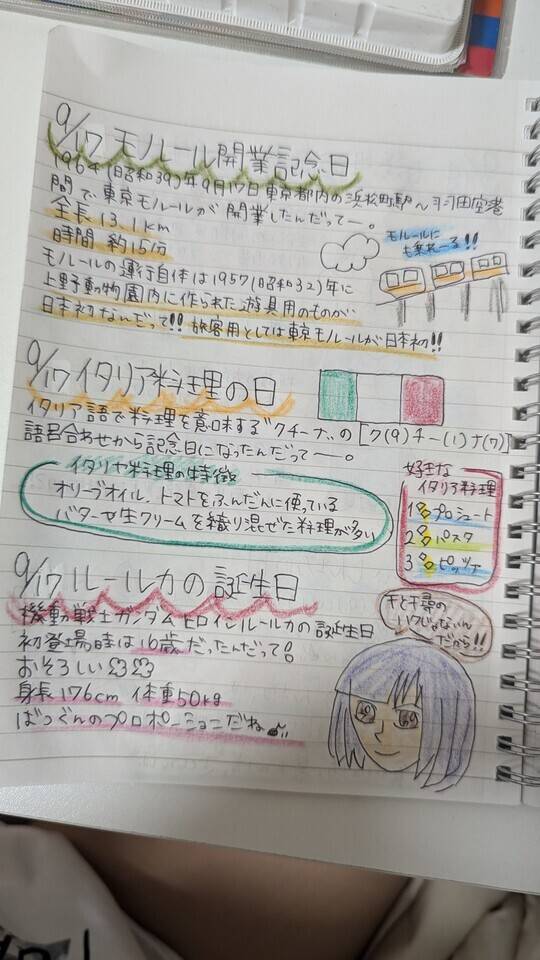 9/17 モノルール開業記念日
1964(昭和39)年9月17日東京都内の浜松町駅〜羽田空港
間で、東京モノルールが開業したんだって〜。
全長13.1km
時間 約15分
モノルールの運行自体は1957(昭和32)年に
上野動物園内に作られた遊具用のものが
日本初なんだって!! 旅客用としては東京モノルールが日本初!!
モノルールに
も乗れーる!!
9/17イタリア料理の日
イタリア語で料理を意味する"クチーナ"の[ク(9)チー(1)ナ(7)]
語呂合わせから記念日になったんだって〜。
イタリヤ料理の特徴
オリーブオイル、トマトをふんだんに使っている
バターや生クリームを織り混ぜた料理が多い
好きな
イタリア料理
1名プロシュート
2名パスタ
3名ピッツァ
9/17ルールカの誕生日
機動戦士ガンダムヒロインルールカの誕生日
初登場時は16歳だったんだって!
おそろしい
身長176cm 体重50kg
ばつぐんのプロポーショニだね
千と千尋の
ハクじゃないん
だから!!